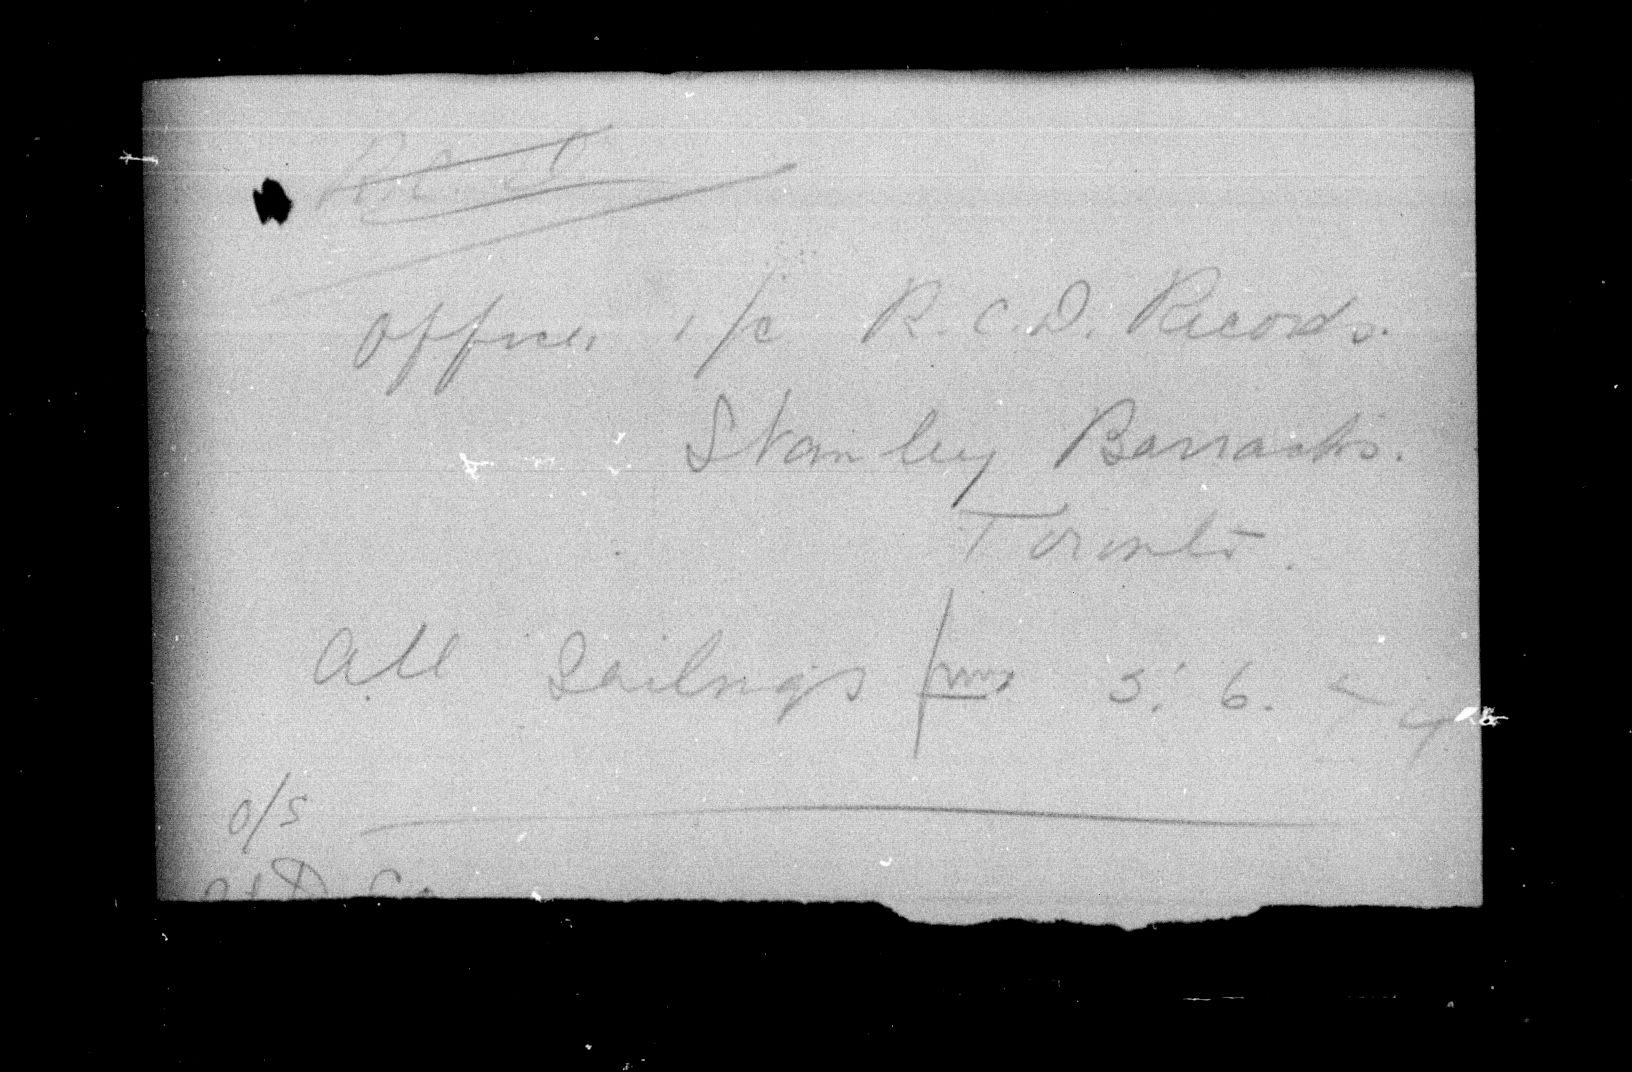 R.C.D.
Officer i/c R.C.D. Records.
Stanley Barracks.
Toronto.
All Sailings from 5. 6.
O/S